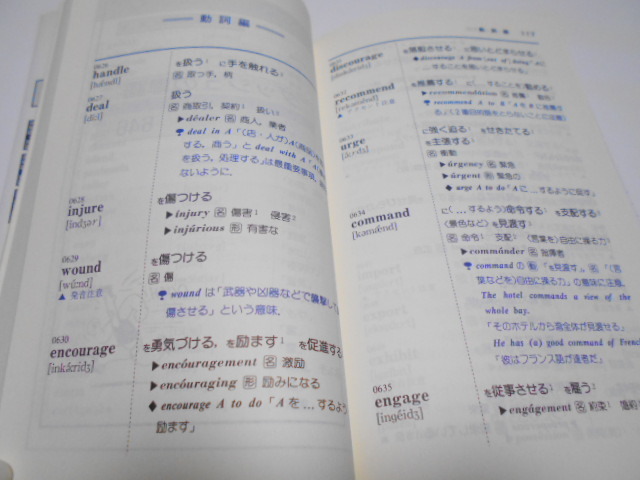 動詞編
0626
handle
[hǽndl]
を扱う に手を触れる
名 取っ手, 柄
0627
deal
[díːl]
扱う
名 商取引, 契約 扱い
▶ déaler 名 商人, 業者
deal in A「(店・人が)A(商品)を
する, 商う」と deal with A「A
を扱う, 処理する」は最重要事項.
ないように.
0628
injure
[índʒər]
を傷つける
▶ injury 名 傷害 侵害
▶ injúrious 形 有害な
0629
wound
[wúːnd]
▲ 発音注意
を傷つける
名 傷
wound は「武器や凶器などで襲撃して
傷させる」という意味.
0630
encourage
[inkə́ːridʒ]
を勇気づける, を励ます を促進する
▶ encóuragement 名 激励
▶ encóuraging 形 励みになる
◆ encourage A to do「A を…するよう
励ます」
動詞編 117
discourage
を落胆させる に思いとどまらせる
◆ discourage A from (out of) doing「A に
…することを思いとどまらせる」
0632
recommend
[rèkəménd]
を推薦する …することを勧める
▶ recommendátion 名 推薦
recommend A to B
0633
urge
[ə́ːrdʒ]
に強く迫る をせきたてる
を主張する
名 衝動
▶ úrgency 名 緊急
▶ úrgent 形 緊急の
◆ urge A to do「A に…するように促す」
0634
command
[kəmǽnd]
に(…するよう)命令する を支配する
(景色など)を見渡す
名 命令 支配 (言葉を)自由に操る力
▶ commánder 名 指揮者
command の 動「を見渡す」, 名「(言
葉などを)自由に操る力」の意味に注意.
The hotel commands a view of the
whole bay.
「そのホテルから湾全体が見渡せる」
He has (a) good command of French
「彼はフランス語が達者だ」
0635
engage
[ingéidʒ]
を従事させる を雇う
▶ engágement 名 約束